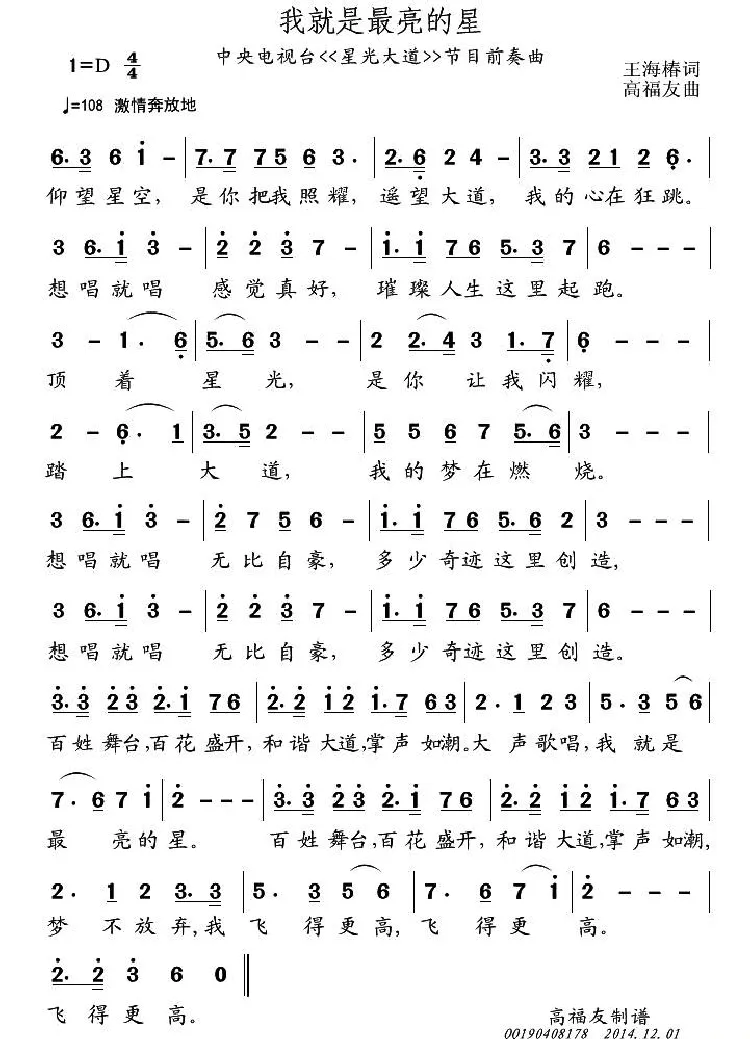 我就是最亮的星
中央电视台<<星光大道>>节目前奏曲
1=D 4/4
王海椿词
高福友曲
♩=108 激情奔放地
6. 3 6 1 - | 7. 7 7 5 6 3. | 2. 6 2 4 - | 3. 3 2 1 2 6. |
仰望星空, 是你把我照耀, 遥望大道, 我的心在狂跳。
3 6. 1 3 - | 2 2 3 7 - | 1. 1 7 6 5. 3 7 | 6 - - - |
想唱就唱 感觉真好, 璀璨人生这里起跑。
3 - 1. 6 | 5. 6 3 - - | 2 2. 4 3 1. 7 | 6 - - - |
顶着星光, 是你让我闪耀,
2 - 6. 1 | 3. 5 2 - - | 5 5 6 7 5. 6 | 3 - - - |
踏上大道, 我的梦在燃烧。
3 6. 1 3 - | 2 7 5 6 - | 1. 1 7 6 5. 6 2 | 3 - - - |
想唱就唱 无比自豪, 多少奇迹这里创造,
3 6. 1 3 - | 2 2 3 7 - | 1. 1 7 6 5. 3 7 | 6 - - - |
想唱就唱 无比自豪, 多少奇迹这里创造。
3. 3 2 3 2. 1 7 6 | 2. 2 1 2 1. 7 6 3 | 2. 1 2 3 | 5. 3 5 6 |
百姓舞台,百花盛开, 和谐大道,掌声如潮。大声歌唱, 我就是
7. 6 7 1 | 2 - - - | 3. 3 2 3 2. 1 7 6 | 2. 2 1 2 1. 7 6 3 |
最亮的星。 百姓舞台,百花盛开, 和谐大道,掌声如潮,
2. 1 2 3. 3 | 5. 3 5 6 | 7. 6 7 1 | 2 - - - |
梦不放弃,我飞得更高, 飞得更高。
2. 2 3 6 0 ‖
飞得更高。
高福友制谱
00190408178 2014.12.01